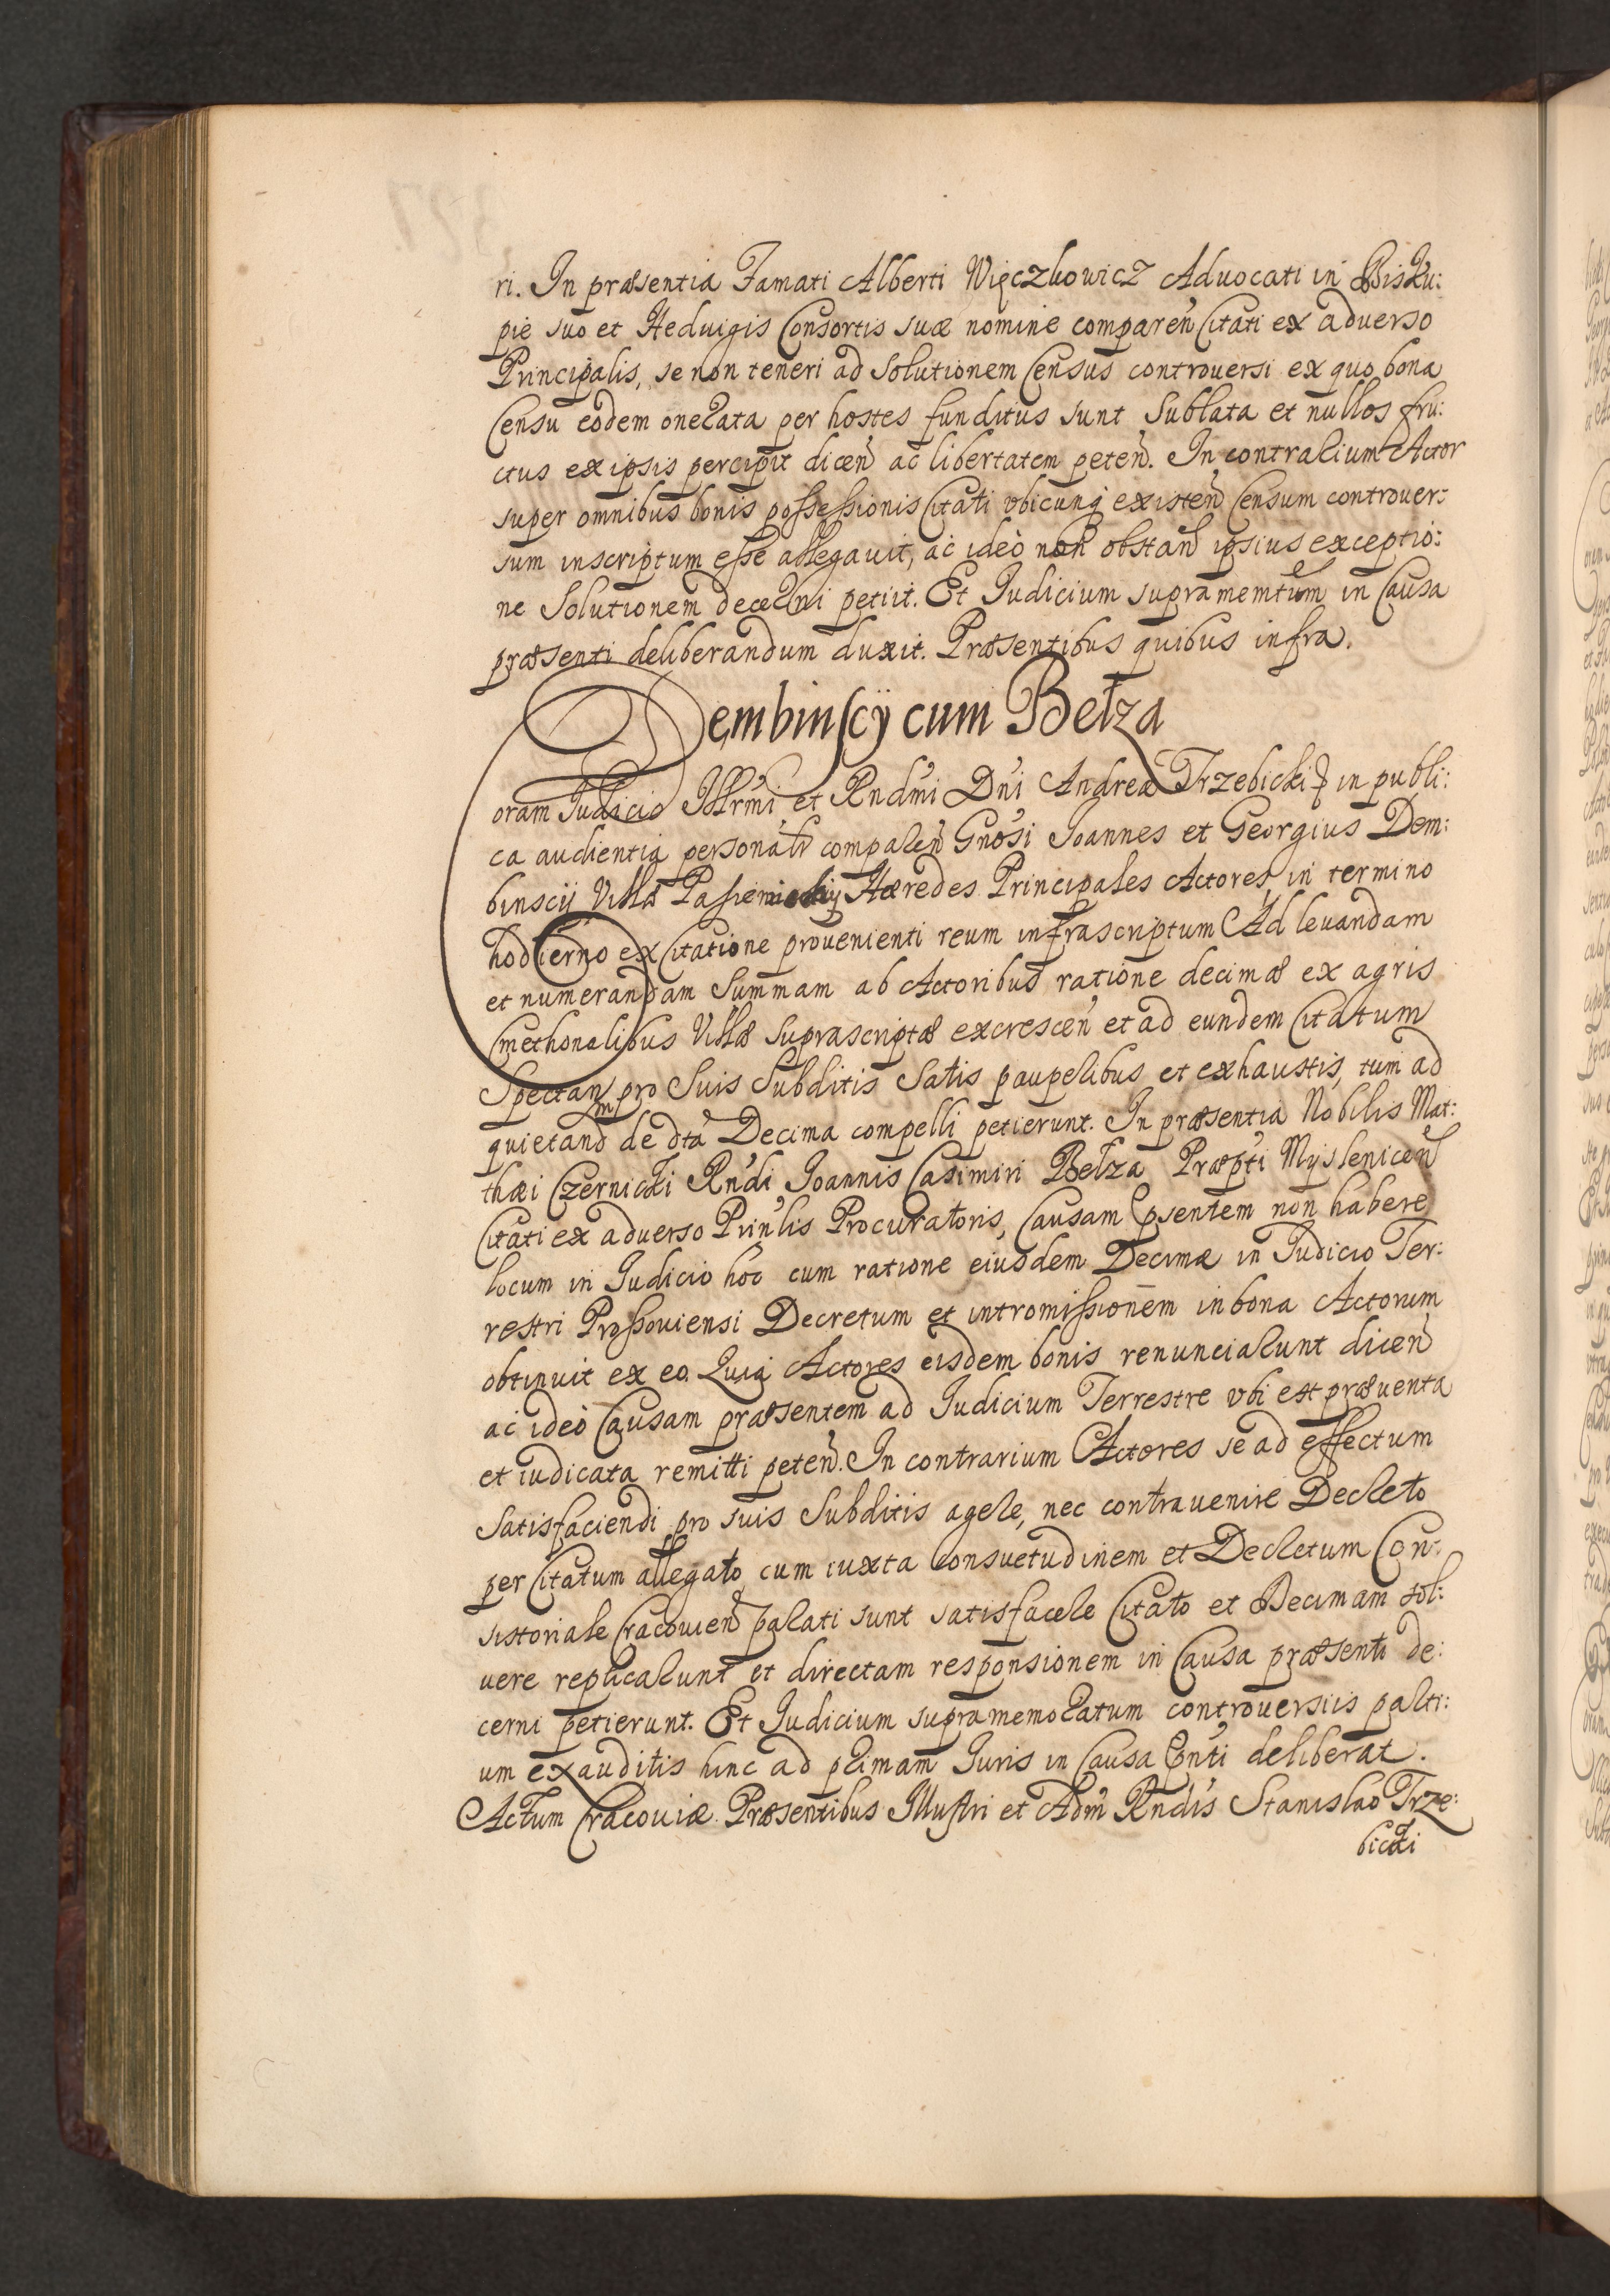 ri. In præsentia Famati Alberti Więczkowicz Advocati in Bisku:
pie suo et Heduigis Consortis suæ nomine comparen Citati ex aduerso
Principalis, se non teneri ad Solutionem Census controuersi ex quo bona
Censu eodem onerata per hostes funditus sunt Sublata et nullos fru:
ctus ex ipsis percipit dicen ac libertatem peten. In contrarium Actor
super omnibus bonis possessionis Citati vbicunq existen Censum controuer:
sum inscriptum esse allegauit, ac ideò non obstan ipsius exceptio:
ne Solutionem decerni petiit. Et Iudicium supramemtum in Causa
præsenti deliberandum duxit. Præsentibus quibus infra.
Dembinscÿ cum Bełza
Coram Iudicio Illrmi et Rndmi Dni Andreæ Trzebicki in publi:
ca audientia personalr comparen Gnosi Joannes et Georgius Dem:
binscij Villæ Hæredes Principales Actores, in termino
hodierno ex Citatione prouenienti reum infrascriptum Ad leuandam
et numerandam Summam ab Actoribus ratione decimæ ex agris
Cmethonalibus Villæ Suprascriptæ excrescen et ad eundem Citatum
Spectan pro Suis Subditis Satis pauperibus et exhaustis, tum ad
quietand de dta Decima compelli petierunt. In præsentia Nobilis Mat:
thæi Czernicki Rndi Joannis Casimiri Bełza Præpti Myslenicen
Citati ex aduerso Prinlis Procuratoris, Causam psentem non habere
locum in Iudicio hoc cum ratione eiusdem Decimæ in Iudicio Ter:
restri Prossouiensi Decretum et intromissionem in bona Actorum
obtinuit ex eo. Quia Actores eisdem bonis renunciarunt dicen
ac ideò Causam præsentem ad Iudicium Terrestre vbi est præuenta
et iudicata remitti peten. In contrarium Actores se ad effectum
Satisfaciendi pro suis Subditis agere, nec contrauenire Decreto
per Citatum allegato, cum iuxta Consuetudinem et Decretum Con:
sistoriale Cracouien parati sunt satisfacere Citato et Decimam sol:
uere replicarunt et directam responsionem in Causa præsenti de:
cerni petierunt. Et Iudicium supramemoratum controuersiis parti:
um exauditis hinc ad primam Iuris in Causa pnti deliberat.
Actum Cracouiæ. Præsentibus Illustri et Adm Rndis Stanislao Trze:
bicki